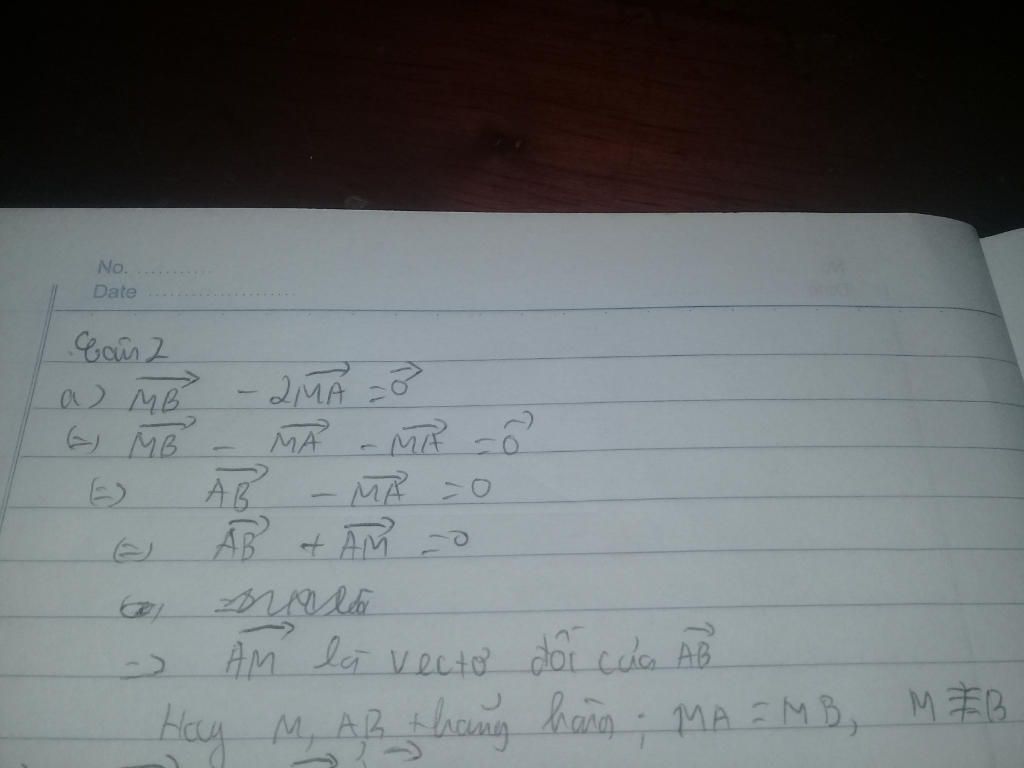 No. ............
Date ......................
a) \overrightarrow{MB} - 2\overrightarrow{MA} = \overrightarrow{0}
(=) \overrightarrow{MB} - \overrightarrow{MA} - \overrightarrow{MA} = \overrightarrow{0}
(=) \overrightarrow{AB} - \overrightarrow{MA} = 0
(=) \overrightarrow{AB} + \overrightarrow{AM} = 0
=> \overrightarrow{AM} là vectơ đối của \overrightarrow{AB}
Hay M, A, B thẳng hàng ; MA = MB, M ≢ B